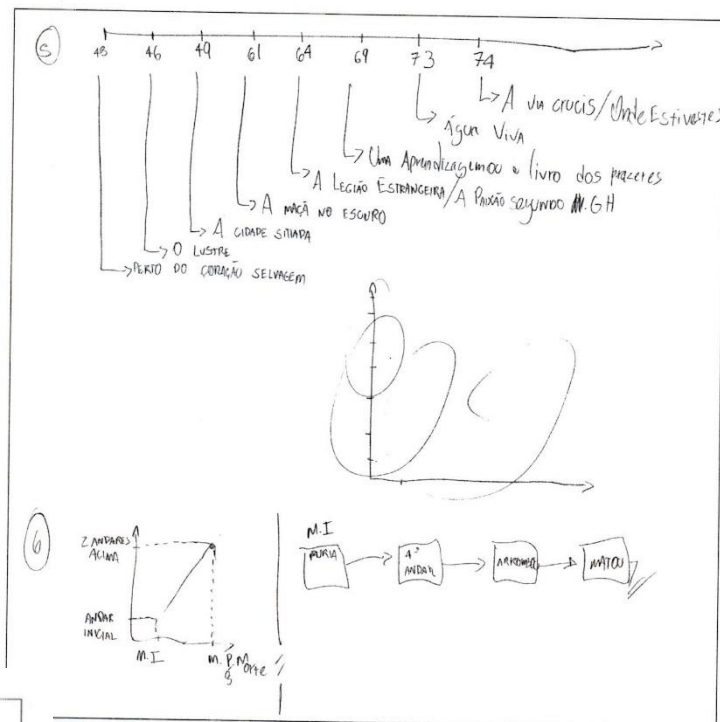 5
43 46 49 61 64 69 73 74
A via crucis/Onde Estivestes
Água VIVA
Uma Aprendizagem ou o livro dos prazeres
A LEGIÃO ESTRANGEIRA/A PAIXÃO segundo GH
A MAÇÃ NO ESCURO
A CIDADE SITIADA
O LUSTRE
PERTO DO CORAÇÃO SELVAGEM
6
2 ANDARES
ACIMA
ANDAR
INICIAL
M.I
Morte
M.I
FÚRIA
4º
ANDAR
MATOU